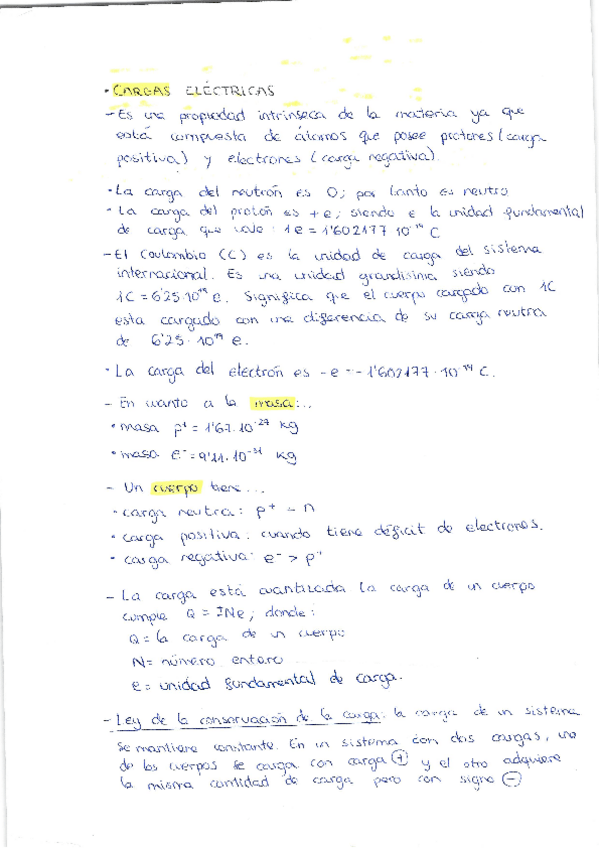 • CARGAS ELÉCTRICAS
- Es una propiedad intrínseca de la materia ya que
está compuesta de átomos que posee protones (carga
positiva) y electrones (carga negativa)
• La carga del neutrón es 0; por tanto es neutro
- La carga del protón es +e; siendo e la unidad fundamental
de carga que vale: 1e = 1'602177 10⁻¹⁹ C
- El Coulombio (C) es la unidad de carga del sistema
internacional. Es una unidad grandísima siendo
1C = 6'25·10¹⁸ e. Significa que el cuerpo cargado con 1C
esta cargado con una diferencia de su carga neutra
de 6'25·10¹⁹ e.
• La carga del electrón es -e = -1'602177·10⁻¹⁹ C.
- En cuanto a la masa:...
• masa p⁺ = 1'67·10⁻²⁷ kg
• masa e⁻ = 9'11·10⁻³¹ kg
- Un cuerpo tiene...
• carga neutra: p⁺ = n
• carga positiva: cuando tiene déficit de electrones.
• carga negativa: e⁻ > p⁺
- La carga está cuantizada la carga de un cuerpo
cumple Q = ±Ne; donde:
Q = la carga de un cuerpo
N = número entero
e = unidad fundamental de carga.
- Ley de la conservación de la carga: la carga de un sistema
se mantiene constante. En un sistema con dos cargas, uno
de los cuerpos se carga con carga ⊕ y el otro adquiere
la misma cantidad de carga pero con signo ⊖